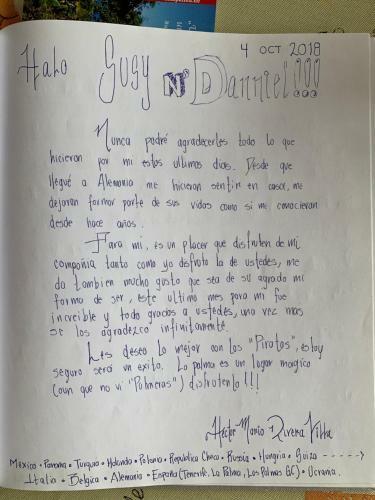 4 OCT 2018
Halo Susy N' Danniel!!!
Nunca podré agradecerles todo lo que
hicieron por mi estos ultimos dias. Desde que
llegué a Alemania me hicieron sentir en casa, me
dejaron formar parte de sus vidas como si me conocieran
desde hace años.
Para mi, es un placer que disfruten de mi
compañia tanto como yo disfruto la de ustedes, me
da tambien mucho gusto que sea de su agrado mi
forma de ser, este ultimo mes para mi fue
increible y todo gracias a ustedes, una vez mas
se los agradezco infinitamente.
Les deseo lo mejor con los "Piratas", estoy
seguro será un exito. La palma es un lugar magico
(aun que no vi "Palmeras") disfrutenlo!!!
Hector Mario Rivera Villa
Mexico • Panama • Turquia • Holanda • Polonia • Republica Checa • Rusia • Hungria • Suiza ---->
Italia • Belgica • Alemania • España (Tenerife, La Palma, Las Palmas GC) • Ucrania.